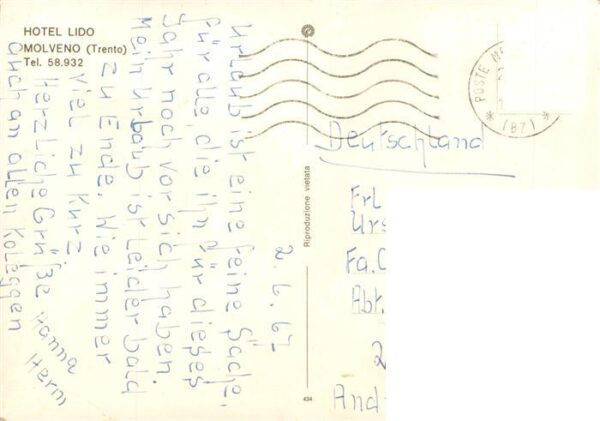 HOTEL LIDO
MOLVENO (Trento)
Tel. 58.932
2.6.67
Urlaub ist eine feine Sache.
Für alle, die ihn für dieses
Jahr noch vor sich haben
Mein Urlaub ist leider bald
zu Ende. Wie immer
viel zu kurz
Herzliche Grüße Hanna
auch an allen Kolеggen Herm
Riproduzione vietata
434
POSTE
(BZ)
Deutschland
Frl
Urs
Fa.
Abt.
2
And